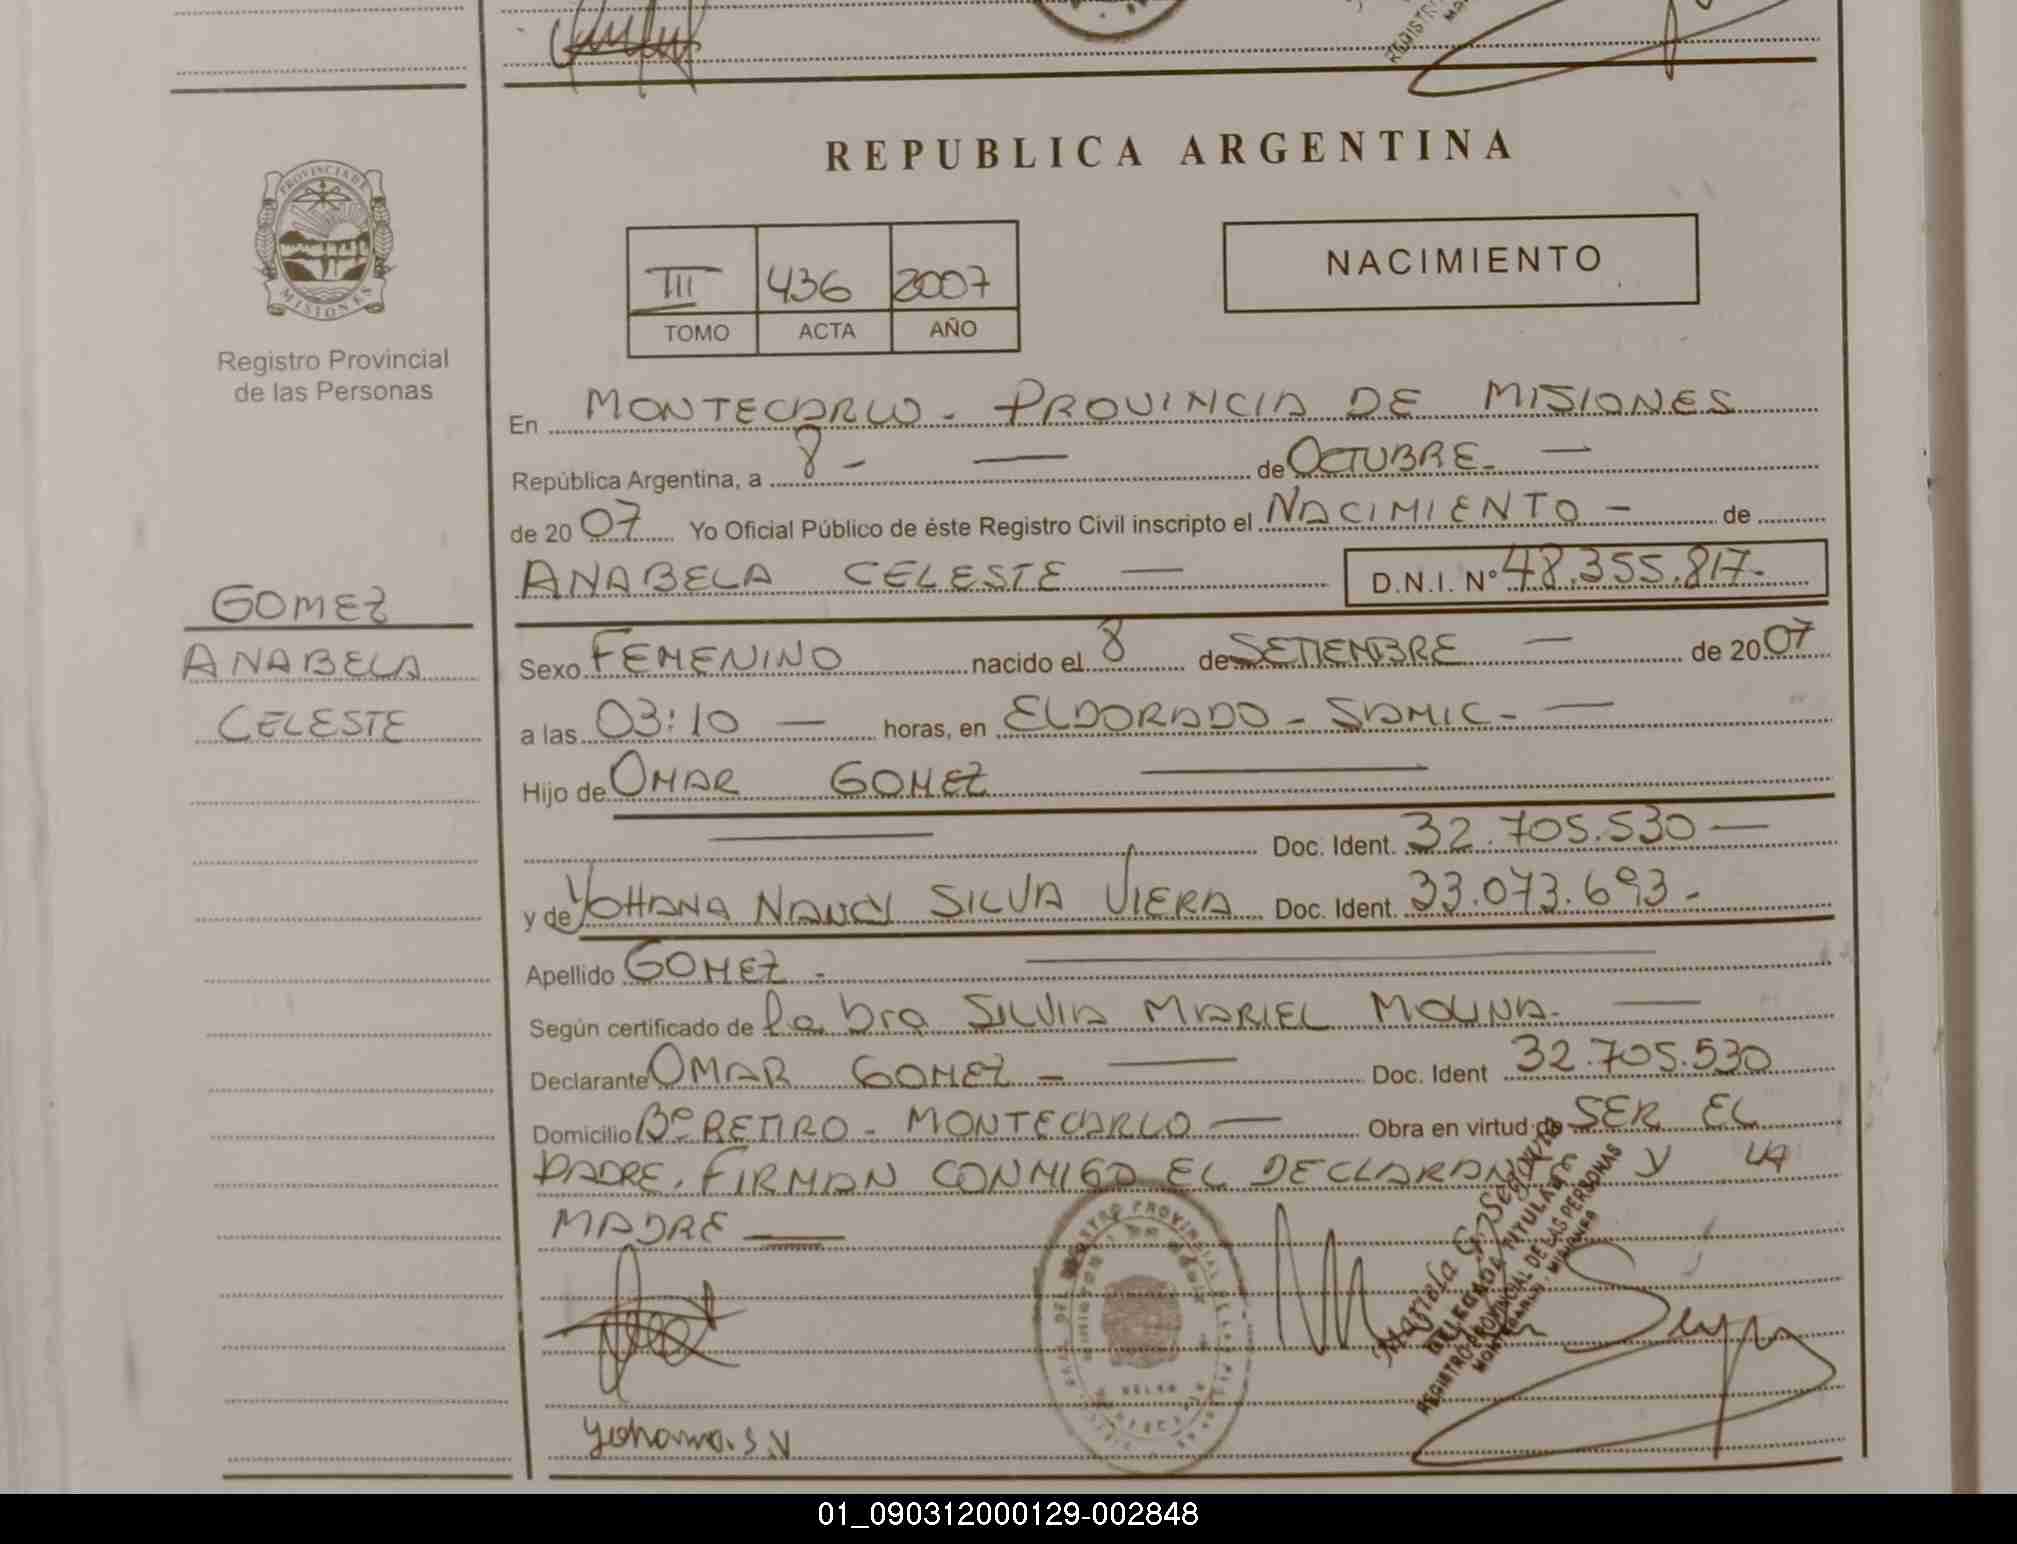 REPUBLICA ARGENTINA
PROVINCIA DE
MISIONES
Registro Provincial
de las Personas
III 436 2007
TOMO ACTA AÑO
NACIMIENTO
En MONTECARLO - PROVINCIA DE MISIONES
República Argentina, a 8 - — de OCTUBRE - —
de 2007 Yo Oficial Público de éste Registro Civil inscripto el NACIMIENTO - de
ANABELA CELESTE — D.N.I. N° 48.355.817-
GOMEZ
ANABELA
CELESTE
Sexo FEMENINO nacido el 8 de SETIEMBRE — de 2007
a las 03:10 — horas, en ELDORADO - SAMIC - —
Hijo de OMAR GOMEZ —
— Doc. Ident. 32.705.530 —
y de YOHANA NANCY SILVA VIERA Doc. Ident. 33.073.693 -
Apellido GOMEZ - —
Según certificado de la Dra SILVIA MARIEL MOLINA - —
Declarante OMAR GOMEZ - — Doc. Ident 32.705.530
Domicilio Bº RETIRO - MONTECARLO — Obra en virtud de SER EL
PADRE. FIRMAN CONMIGO EL DECLARANTE Y LA
MADRE —
DELEGADA TITULAR
REGISTRO PROVINCIAL DE LAS PERSONAS
MONTECARLO - MISIONES
Yohana. S.V
01_090312000129-002848